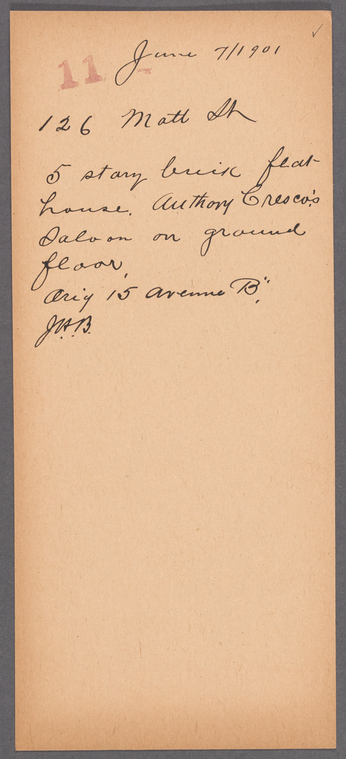 June 7/1901
11
126 Mott St
5 story brick flat
house. Anthony Cresco's
Saloon on ground
floor,
Orig 15 Avenue "B".
J.H.B.